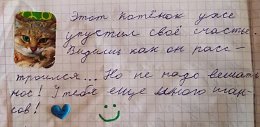 Этот котёнок уже
упустил своё счастье.
Видишь как он расс-
троился... Но не надо вешать
нос! У тебя еще много шан-
сов!